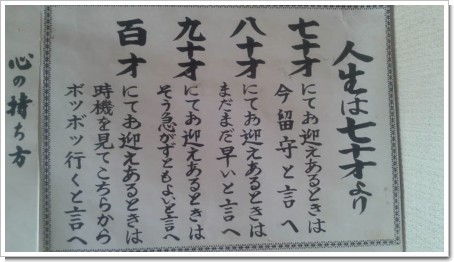 人生は七十才より
七十才にてお迎えあるときは
今留守と言へ
八十才にてお迎えあるときは
まだまだ早いと言へ
九十才にてお迎えあるときは
そう急がずともよいと言へ
百才にてお迎えあるときは
時機を見てこちらから
ボツボツ行くと言へ
心の持ち方